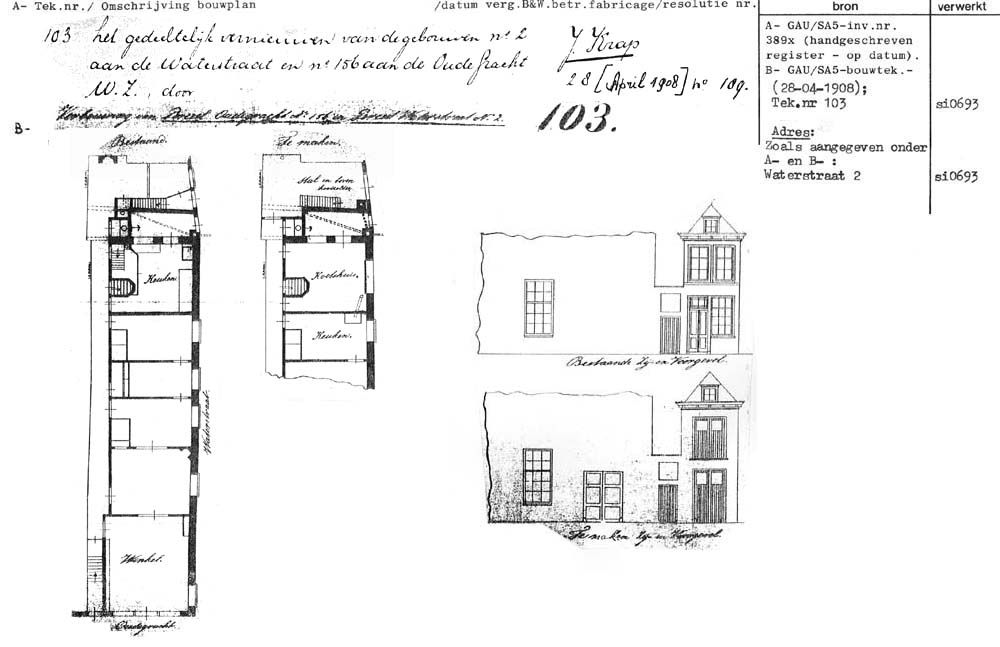 A- Tek.nr./ Omschrijving bouwplan /datum verg.B&W.betr.fabricage/resolutie nr. bron verwerkt
103 het gedeeltelijk vernieuwen van de gebouwen nº 2
aan de Waterstraat en nº 156 aan de Oude Gracht
W.Z., door
J Krap
28 [April 1908] nº 189.
A- GAU/SA5-inv.nr.
389x (handgeschreven
register - op datum).
B- GAU/SA5-bouwtek.-
(28-04-1908);
Tek.nr 103 si0693
Adres:
Zoals aangegeven onder
A- en B- :
Waterstraat 2 si0693
B-
Verbouwing van Perceel Oudegracht Nº 156 en Perceel Waterstraat Nº 2.
103.
Bestaand.
Te maken.
Stal en boven
Keuken.
Koetshuis.
Keuken.
Waterstraat.
Winkel.
Oudegracht.
Bestaande Zij- en Voorgevel.
Te maken Zij- en Voorgevel.